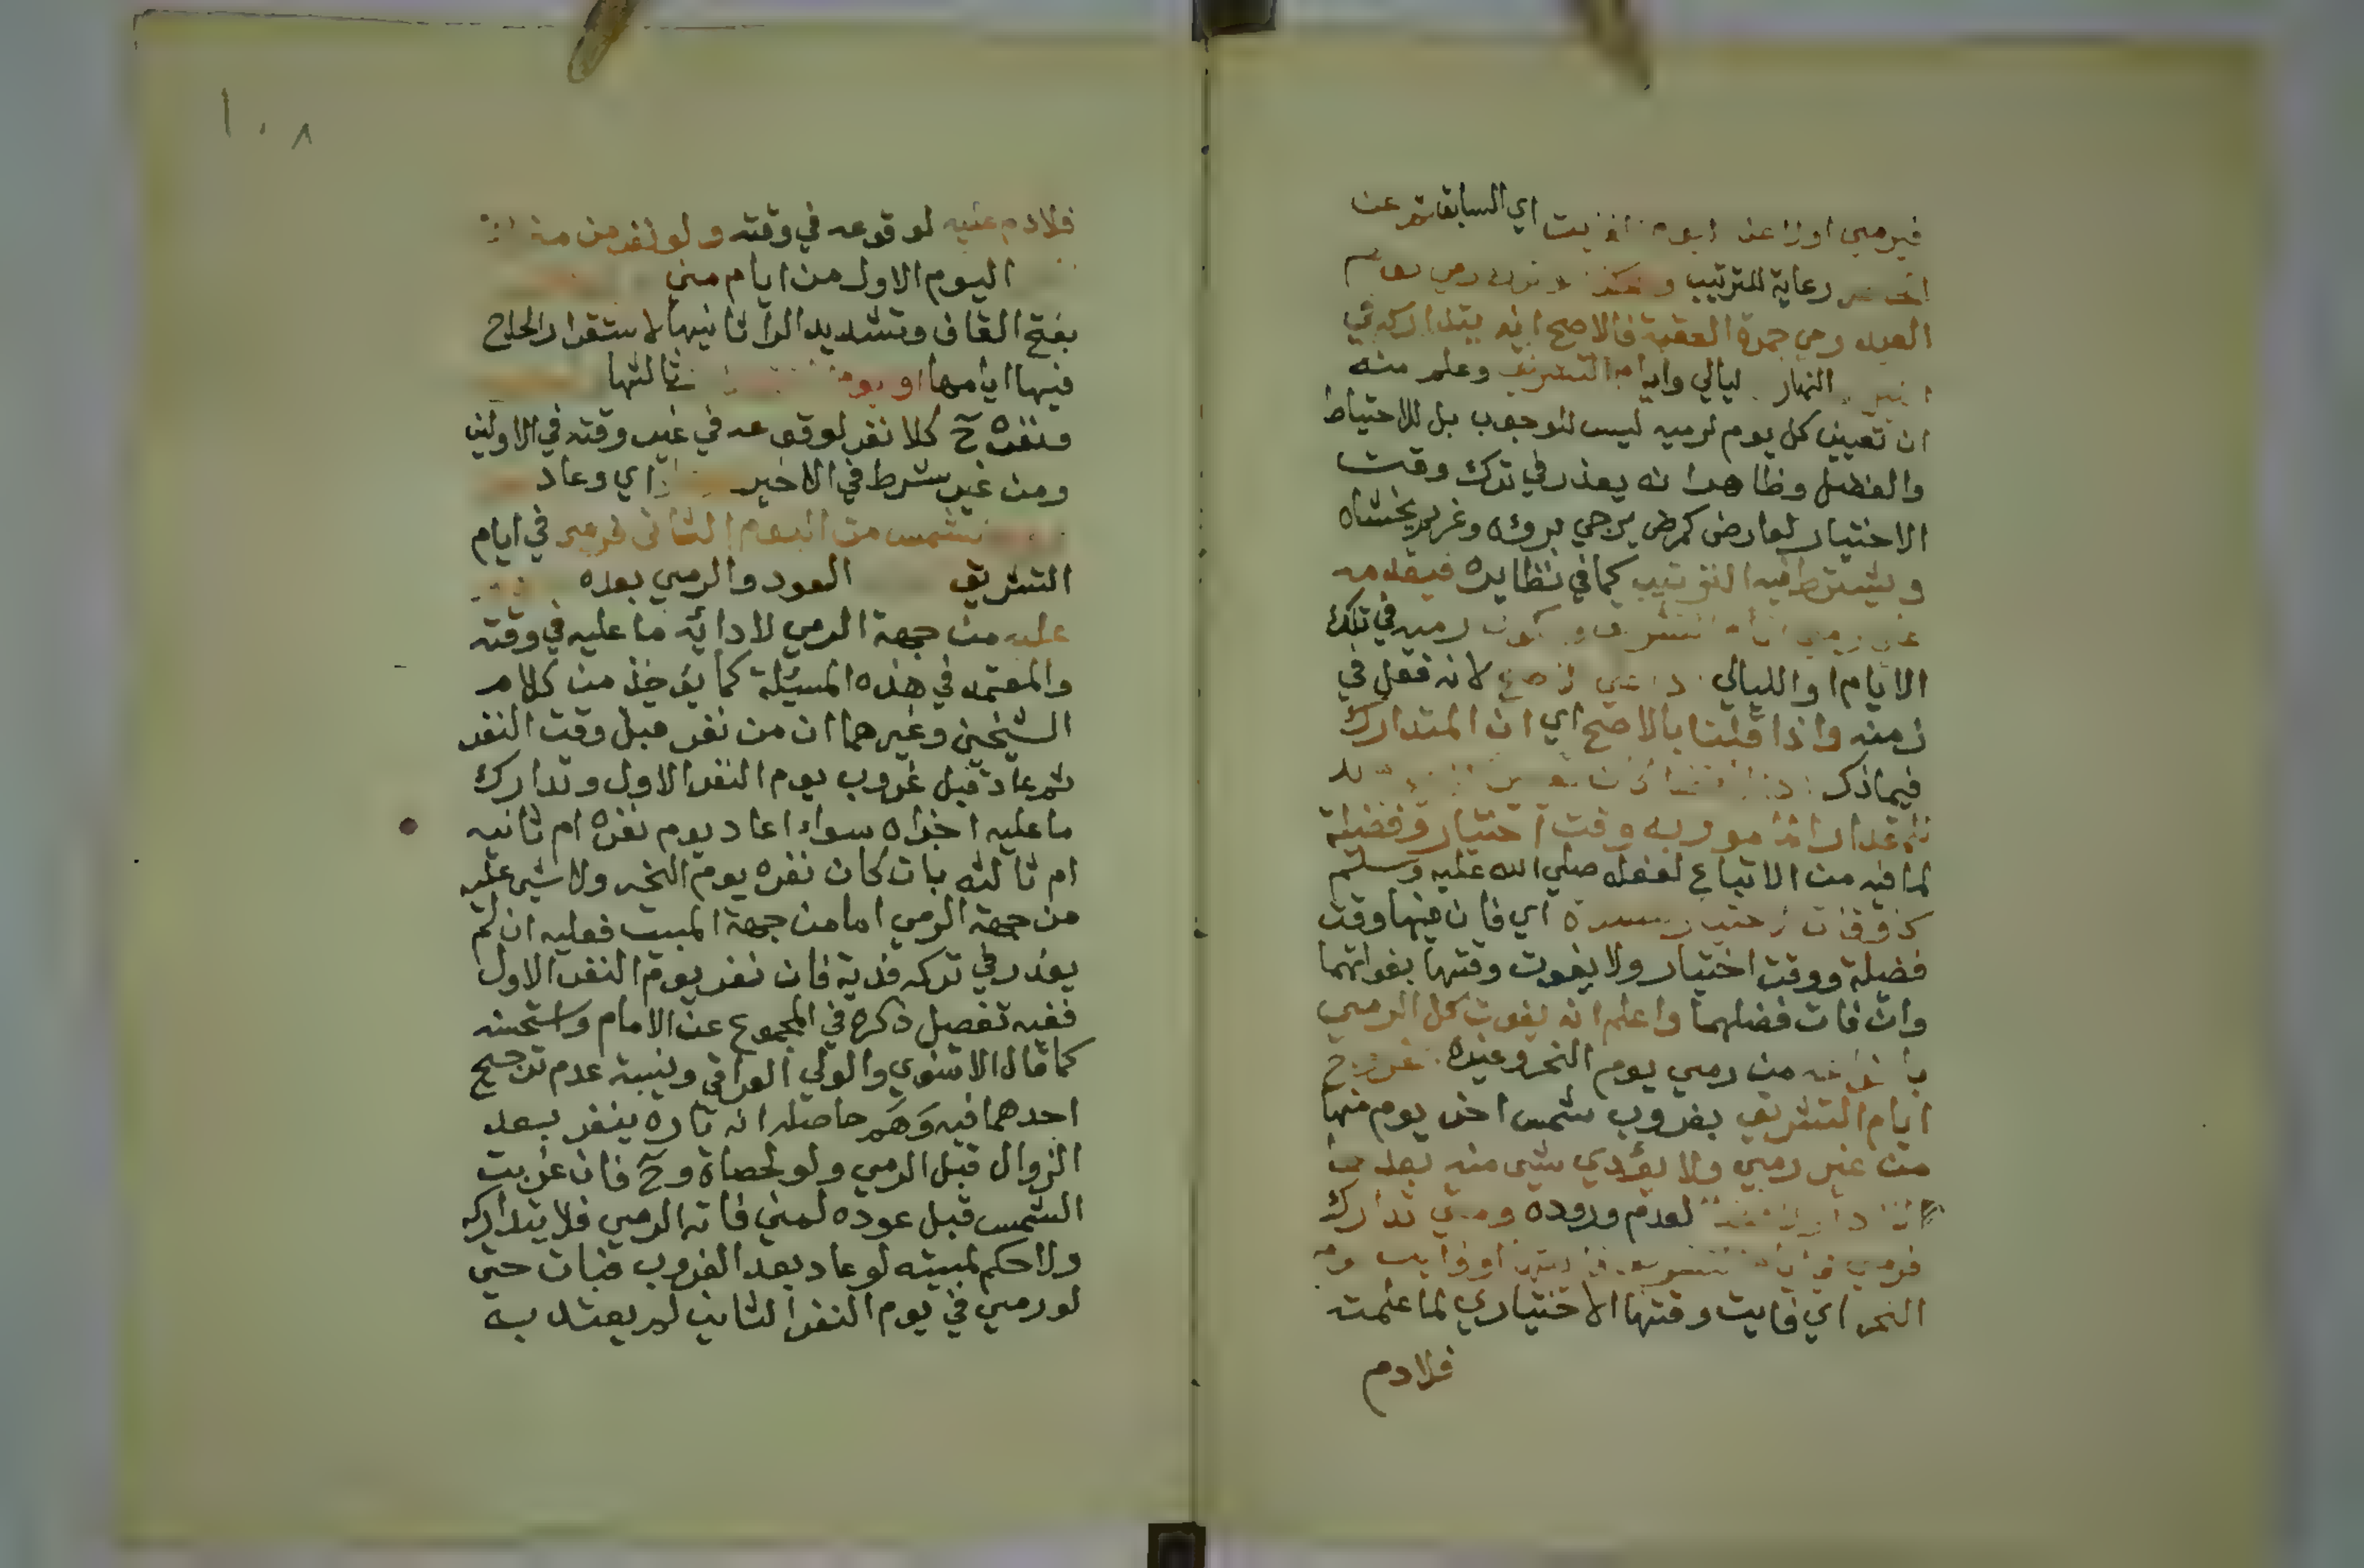 فيرمي اولا عن اليوم الفايت اي السابق ثم عن
رعاية للترتيب وهكذا لو ترك رمي يوم
العيد رمي جمرة العقبة فالاصح انه يتداركه في
النهار ليالي وايام التشريق وعلم منه
ان تعيين كل يوم لرميه ليس للوجوب بل للاحتياط
والفضل وظاهر انه يعذر في ترك وقت
الاختيار لعارض كمرض يرجي بروه وغريم يخشاه
ويشترط فيه الترتيب كما في نظايره فيقدمه
علي رمي ايام التشريق ويكون رميه في تلك
الايام والليالي لانه فعل في
زمنه واذا قلنا بالاصح اي ان المتدارك
فيما ذكر
المامور به وقت اختيار وفضيلة
لما فيه من الاتباع لفعله صلي الله عليه وسلم
كوقت اختيار اي فان فيها وقت
فضيلة ووقت اختيار ولا يفوت وقتها بفواتهما
وان فات فضلهما واعلم انه يفوت كل الرمي
من رمي يوم النحر وغيره بخروج
ايام التشريق بغروب شمس اخر يوم منها
من غير رمي ولا يؤدي شي منه بعدها
لعدم وروده ومتي تدارك
فرمي في ايام التشريق او فايت يوم
النحر اي فايت وقتها الاختياري لما علمت
فلا دم
١٠٨
فلا دم عليه لوقوعه في وقته ولو نفر من مني
اليوم الاول من ايام مني
بفتح القاف وتشديد الراء ثانيها لاستقرار الحاج
فيها ايامها او يوم ثالثها
فنفره ح كلا نفر لوقوعه في غير وقته في الاولين
ومن غير شرط في الاخير اي وعاد
شمس من اليوم الثاني فرمي في ايام
التشريق العود والرمي بعده
عليه من جهة الرمي لادائه ما عليه في وقته
والمعتمد في هذه المسئلة كما يؤخذ من كلام
الشيخين وغيرهما ان من نفر قبل وقت النفر
ثم عاد قبل غروب يوم النفر الاول وتدارك
ما عليه اجزاه سواء اعاد يوم نفره ام ثانيه
ام ثالثه بان كان نفره يوم النحر ولا شي عليه
من جهة الرمي اما من جهة المبيت فعليه ان لم
يعذر في تركه فدية فان نفر يوم النفر الاول
ففيه تفصيل ذكره في المجموع عن الامام واستحسنه
كما قال الاسنوي والولي العراقي ونسبة عدم ترجيح
احدهما فيه وَهَم حاصله انه تارة ينفر بعد
الزوال قبل الرمي ولو لحصاة وح فان غربت
الشمس قبل عوده لمني فاته الرمي فلا يتداركه
ولا حكم لمبيته لو عاد بعد الغروب فبات حتي
لو رمي في يوم النفر الثاني لم يعتد به